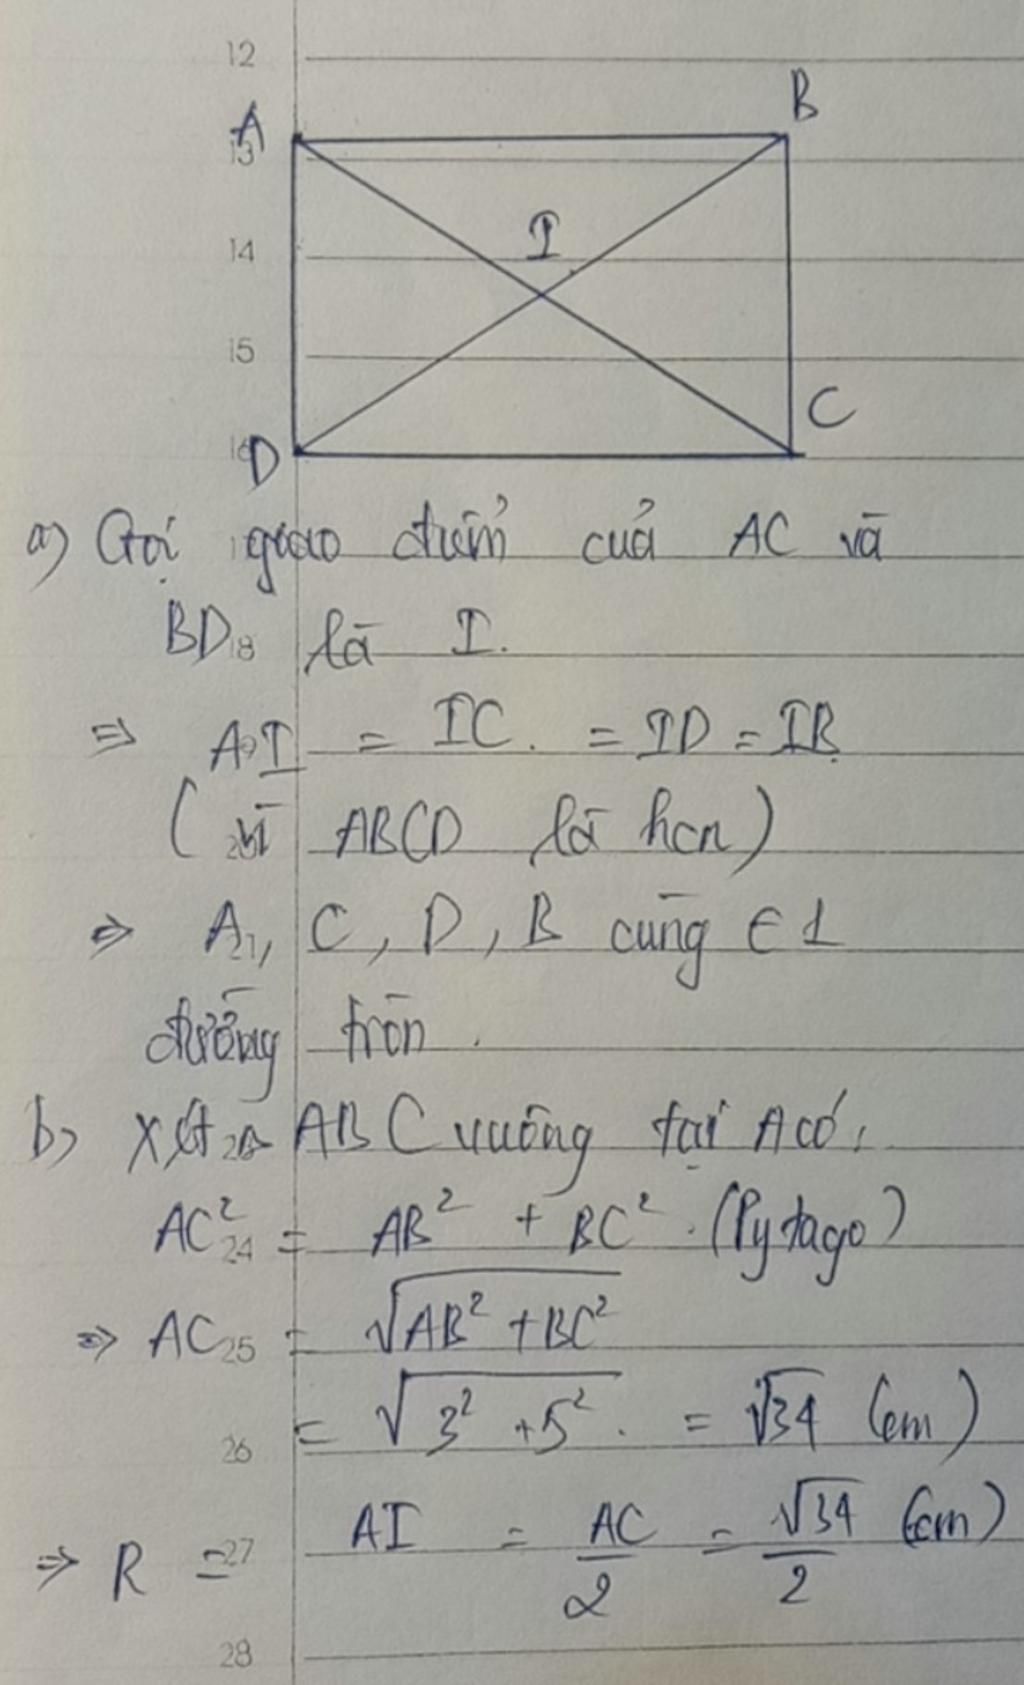 12
A
B
13
I
14
15
C
16
D
a) Gọi giao điểm của AC và
BD là I.
18
⇒ AI = IC. = ID = IB
(vì ABCD là hcn)
⇒ A, C, D, B cùng ∈ 1
21
đường tròn.
b) Xét △ ABC vuông tại A có:
AC² = AB² + BC². (Pytago)
24
⇒ AC = √(AB² + BC²)
25
= √(3² + 5²). = √34 (cm)
26
⇒ R = AI = AC/2 = √34/2 (cm)
27
28